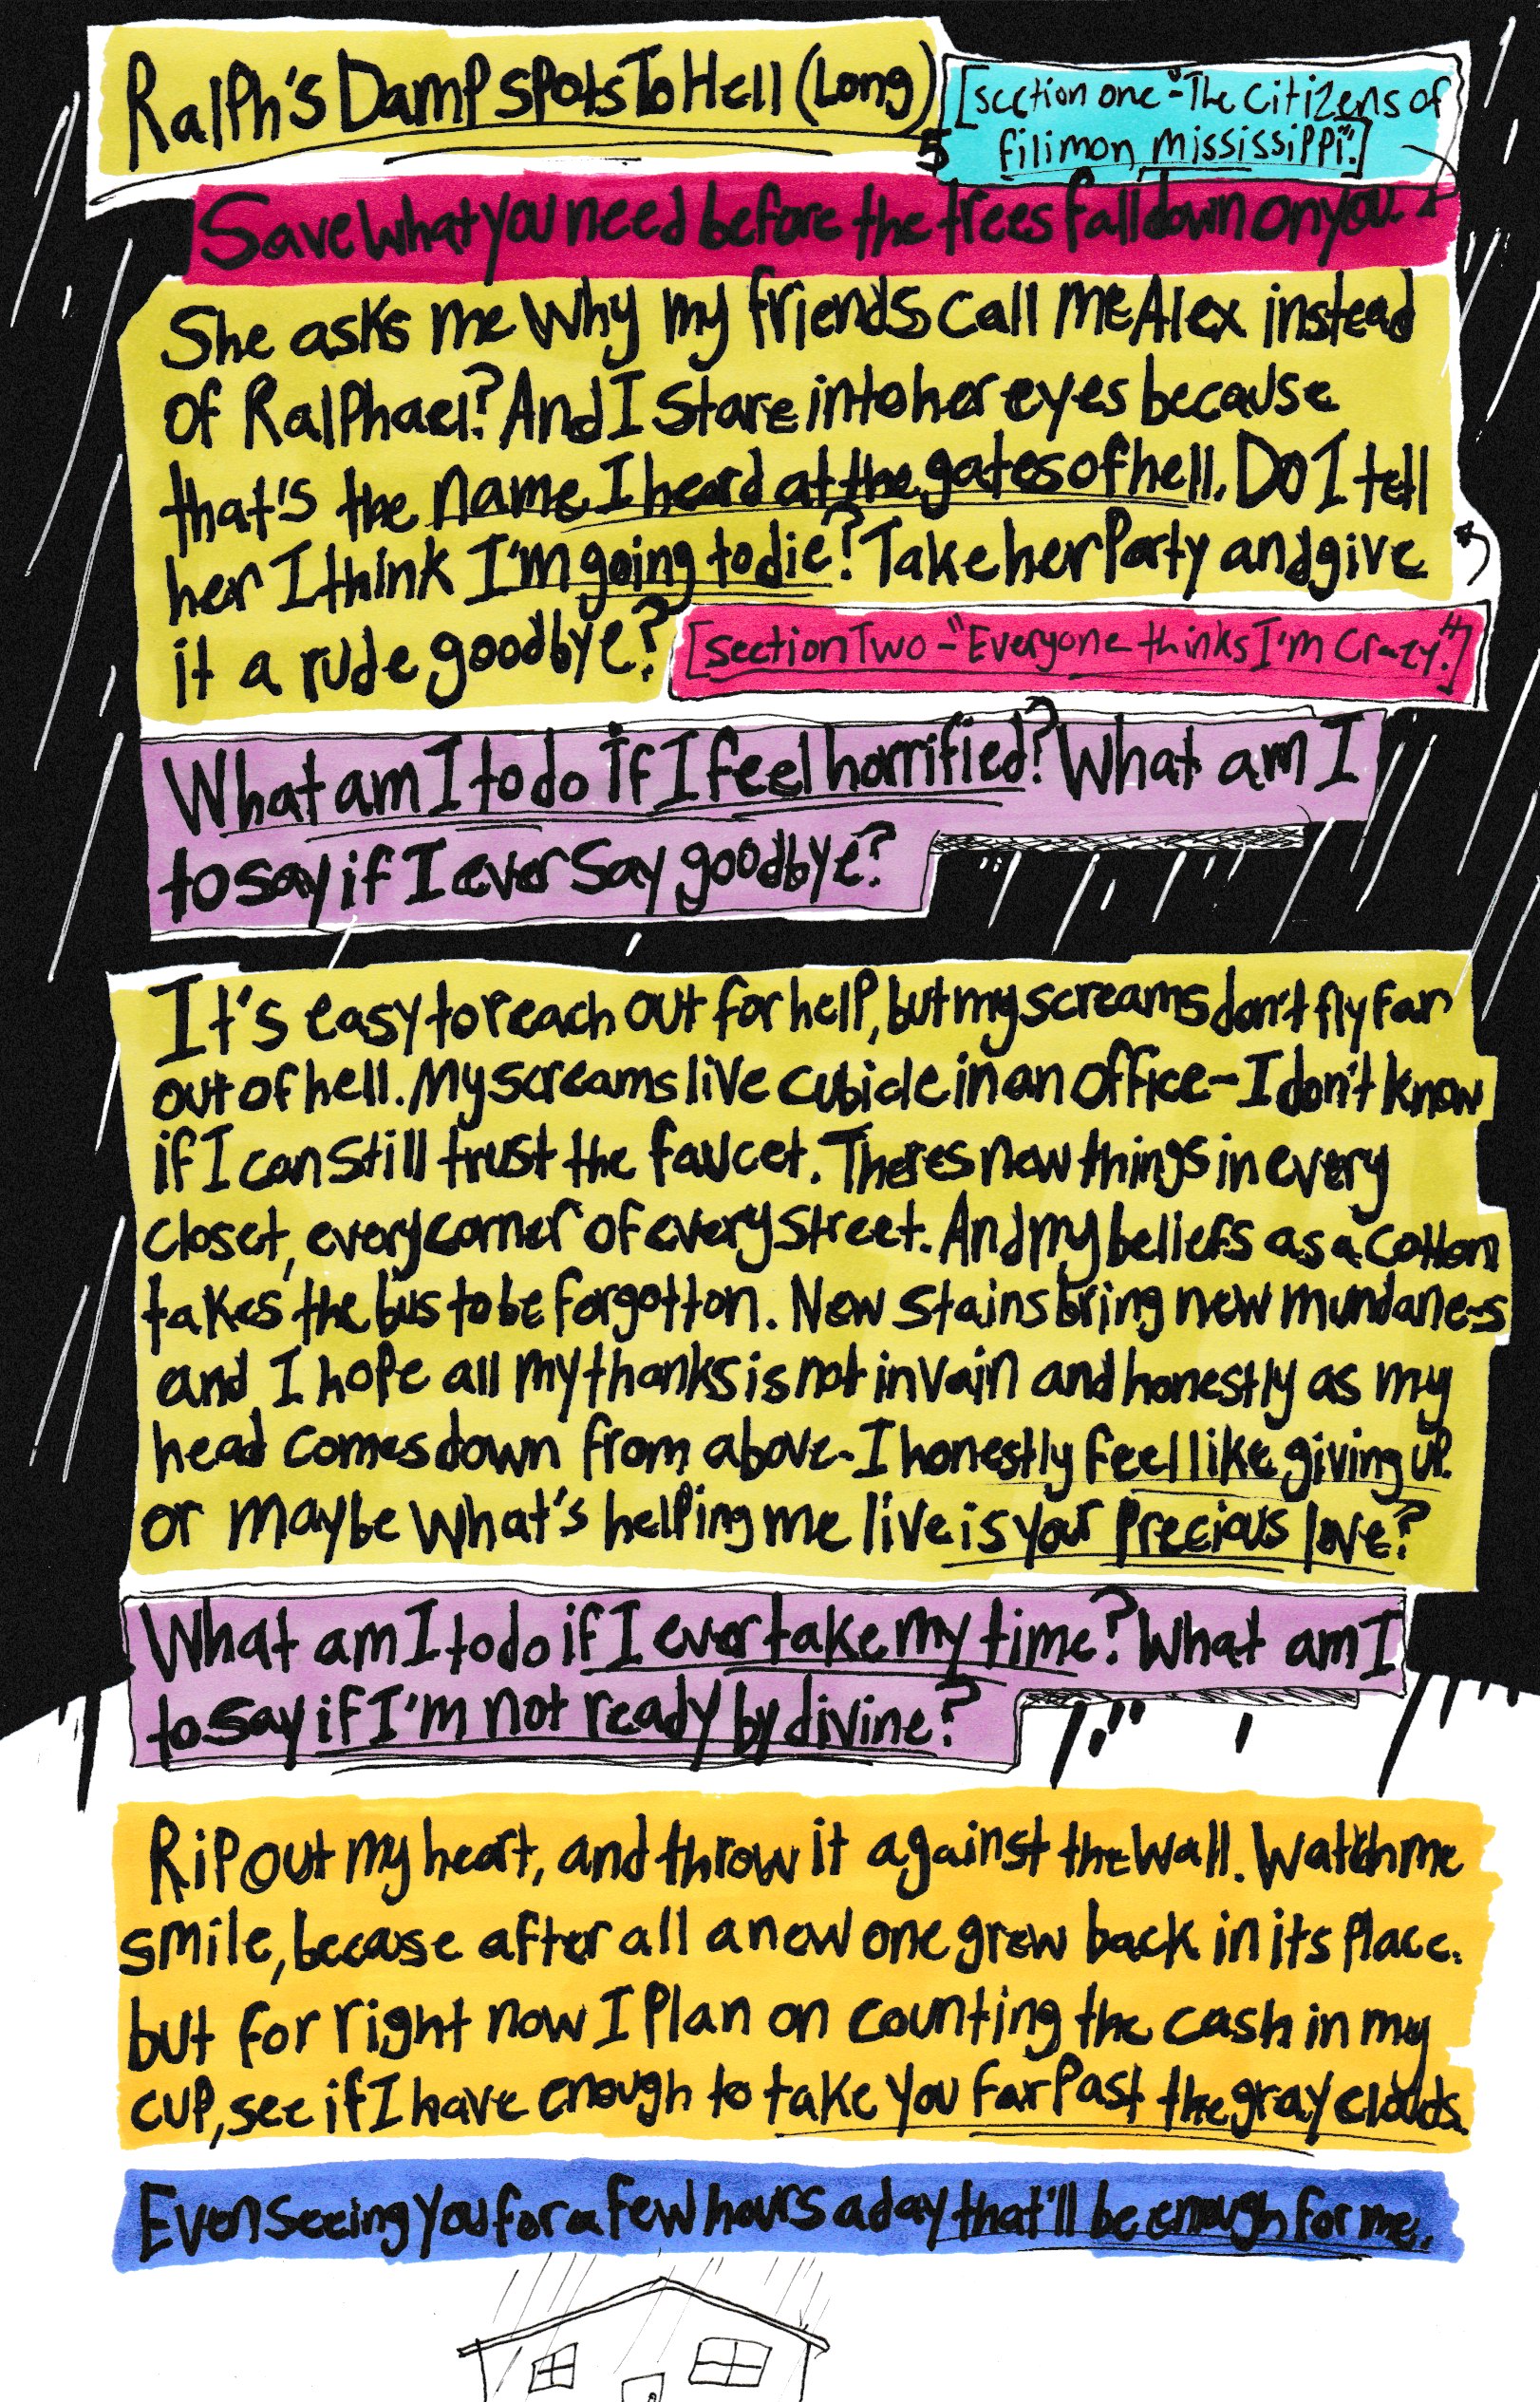 Ralph's Damp spots To Hell (Long)
[section one - "The citizens of
filimon, mississippi".]
Save what you need before the trees fall down on you.
She asks me why my friends call me Alex instead
of Ralphael? And I stare into her eyes because
that's the name I heard at the gates of hell. Do I tell
her I think I'm going to die? Take her Party and give
it a rude goodbye?
[section Two - "Everyone thinks I'm Crazy."]
What am I to do if I feel horrified? What am I
to say if I ever say goodbye?
It's easy to reach out for help, but my screams don't fly far
out of hell. My screams live cubicle in an office - I don't know
if I can still trust the faucet. Theres new things in every
closet, every corner of every street. And my beliefs as a cotton
takes the bus to be forgotton. New stains bring new mundane-s
and I hope all my thanks is not in vain and honestly as my
head comes down from above - I honestly feel like giving up.
or maybe what's helping me live is your precious love?
What am I to do if I ever take my time? What am I
to say if I'm not ready by divine?
Rip out my heart, and throw it against the wall. Watch me
smile, because after all a new one grew back in its place.
but for right now I plan on counting the cash in my
cup, see if I have enough to take you far past the gray clouds.
Even seeing you for a few hours a day that'll be enough for me.